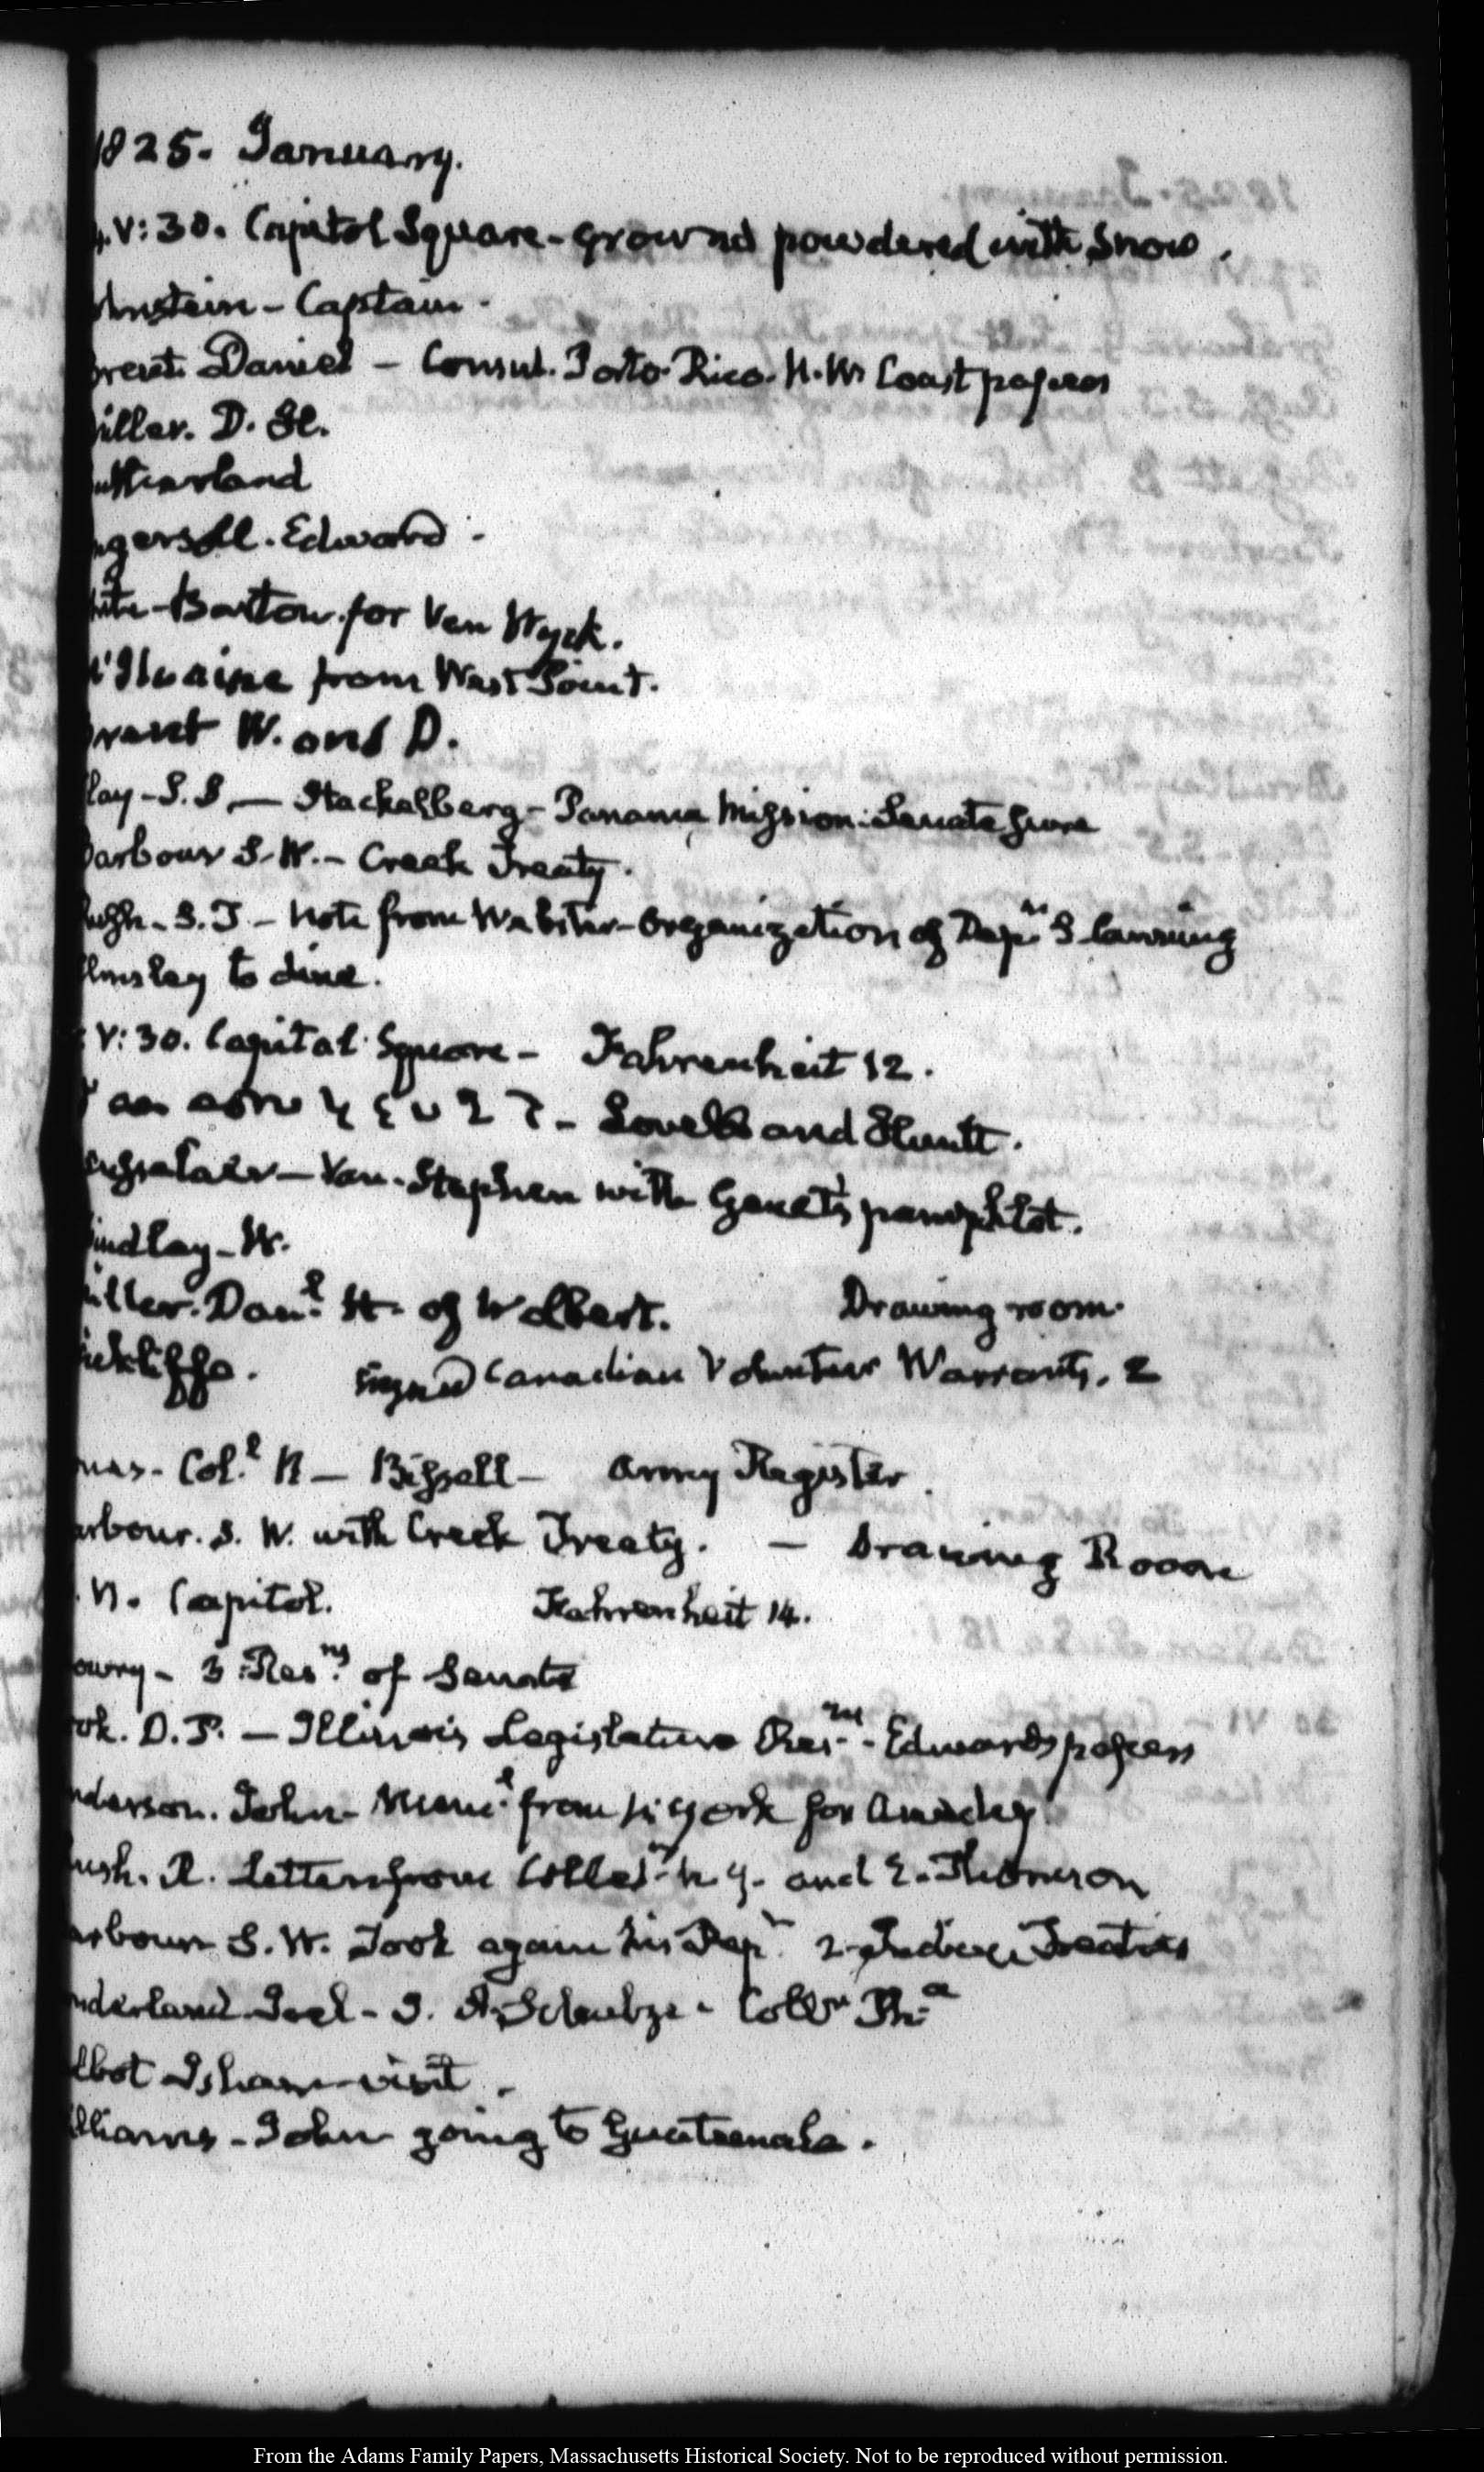 1825. January.
V:30. Capitol Square - ground powdered with Snow.
Captain.
Brent. Daniel - Consul. Porto Rico. N.W. Coast papers
Miller. D. H.
Sutherland
Ingersoll. Edward.
Barton for Van Wyck.
from West Point.
Brent W. and D.
Clay - S.S. - Stackelberg - Panama Mission. Senate
Barbour S.W. - Creek Treaty.
S.T. - Note from Webster - Organization of Dept.
to dine.
V:30. Capitol Square - Fahrenheit 12.
Lovell and Hunt.
Van. Stephen with Genet's pamphlet.
Findlay - W.
Miller. Danl. H. of Drawing room.
Wickliffe. Signed Canadian Volunteer Warrants. 2
Coll. Bissell - Army Register.
arbour. S. W. with Creek Treaty. - Drawing Room
Capitol. Fahrenheit 14.
owry - 3 Resns. of Senate
ok. D.P. - Illinois Legislature Resns. - Edwards papers
nderson. John from N. York for
ush. R. Letters from N.Y. and
arbour S.W. Took again his Rept. 2 Treaties
Joel - J. A. Schulze - Collr. Pha
lbot Isham - visit.
lliams - John going to Guatemala.
From the Adams Family Papers, Massachusetts Historical Society. Not to be reproduced without permission.